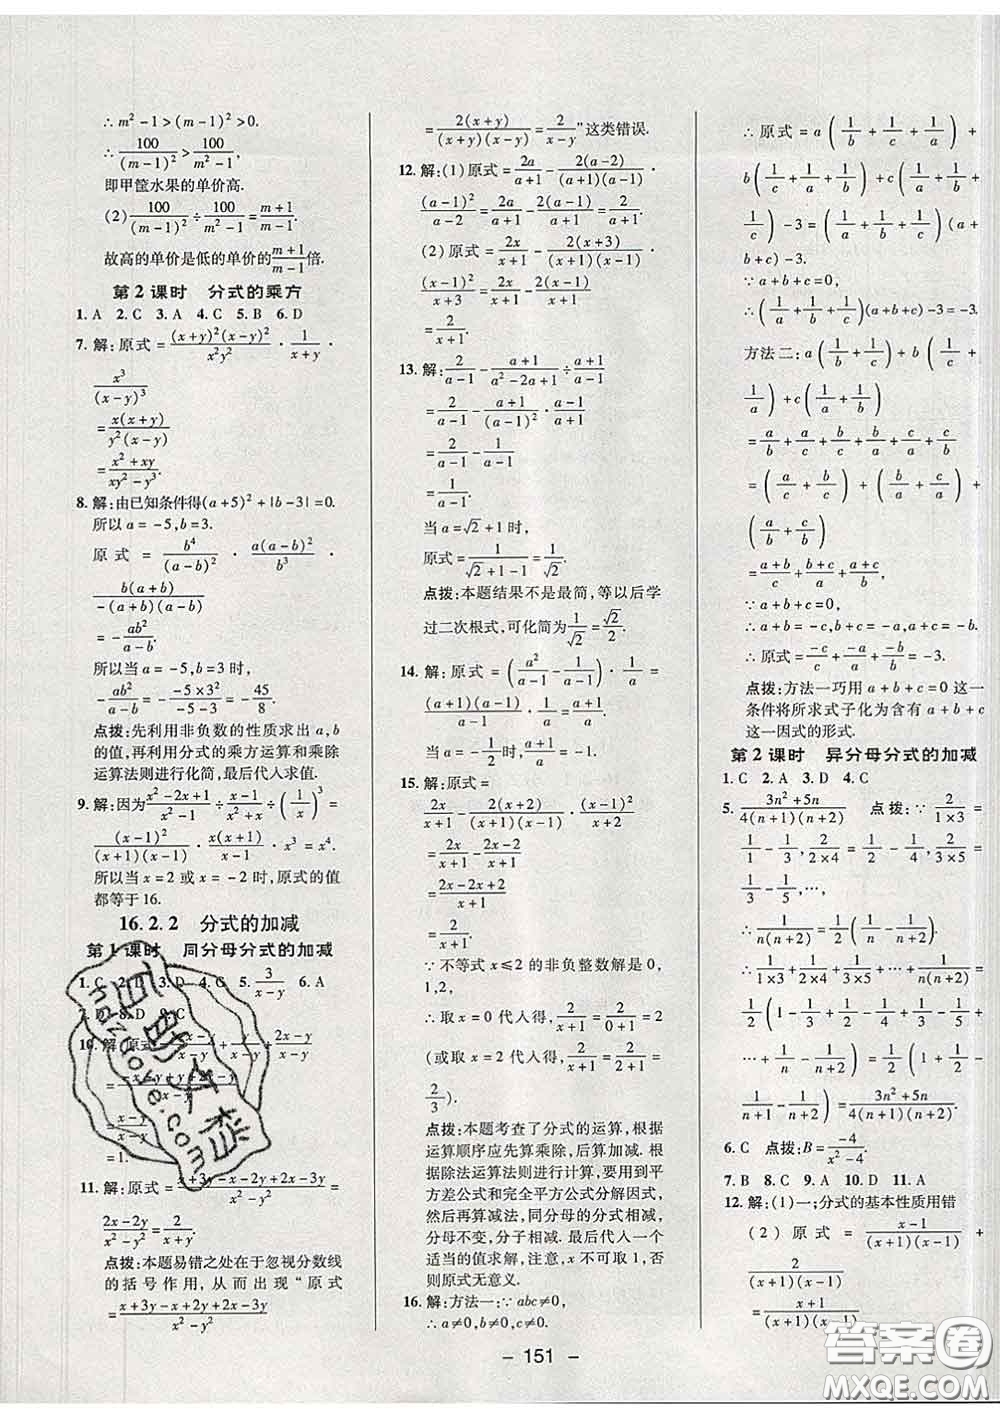 ∴ m²－1＞(m－1)²＞0.
∴ 100/(m－1)² ＞ 100/(m²－1),
即甲筐水果的单价高.
(2) 100/(m－1)² ÷ 100/(m²－1) = (m＋1)/(m－1).
故高的单价是低的单价的 (m＋1)/(m－1) 倍.
第 2 课时 分式的乘方
1. A 2. C 3. A 4. C 5. B 6. D
7. 解:原式 = (x＋y)²(x－y)²/(x²y²) · 1/(x＋y) ·
x³/(x－y)³
= x(x＋y)/(y²(x－y))
= (x²＋xy)/(xy²－y³).
8. 解:由已知条件得(a＋5)²＋|b－3|=0.
所以 a=－5,b=3.
原式 = b⁴/(a－b)² · a(a－b)²/b³ ·
b(a＋b)/(－(a＋b)(a－b))
= －ab²/(a－b).
所以当 a=－5,b=3 时,
－ab²/(a－b) = －(－5×3²)/(－5－3) = －45/8.
点拨:先利用非负数的性质求出 a,b
的值,再利用分式的乘方运算和乘除
运算法则进行化简,最后代入求值.
9. 解:因为 (x²－2x＋1)/(x²－1) ÷ (x－1)/(x²＋x) ÷ (1/x)³ =
(x－1)²/((x＋1)(x－1)) · x(x＋1)/(x－1) · x³ = x⁴.
所以当 x=2 或 x=－2 时,原式的值
都等于 16.
16.2.2 分式的加减
第 1 课时 同分母分式的加减
1. C 2. D 3. D 4. C 5. 3/(x－y) 6. A
7. D 8. D 9. C
10. 解:原式= /(x－y) + /(x－y) + (2x－y)/(x－y)
=
= (x－y)/(x－y)
=1.
11. 解:原式 = (x＋3y－x－2y＋2x－3y)/(x²－y²) =
(2x－2y)/(x²－y²) = 2/(x＋y).
点拨:本题易错之处在于忽视分数线
的括号作用,从而出现“原式
= (x＋3y－x＋2y＋2x－3y)/(x²－y²)
= 2(x＋y)/((x＋y)(x－y)) = 2/(x－y)”这类错误.
12. 解:(1)原式 = 2a/(a＋1) － 2(a－2)/((a＋1)(a－1)) ·
(a－1)²/(a－2) = 2a/(a＋1) － 2(a－1)/(a＋1) = 2/(a＋1).
(2)原式 = 2x/(x＋1) － 2(x＋3)/((x＋1)(x－1)) ·
(x－1)²/(x＋3) = 2x/(x＋1) － 2(x－1)/(x＋1)
= 2/(x＋1).
13. 解: 2/(a－1) － (a＋1)/(a²－2a＋1) ÷ (a＋1)/(a－1)
= 2/(a－1) － (a＋1)/(a－1)² · (a－1)/(a＋1)
= 2/(a－1) － 1/(a－1)
= 1/(a－1).
当 a=√2＋1 时,
原式 = 1/(√2＋1－1) = 1/√2.
点拨:本题结果不是最简,等以后学
过二次根式,可化简为 1/√2 = √2/2.
14. 解:原式 = (a²/(a－1) － 1/(a－1)) · 1/a =
(a＋1)(a－1)/(a－1) · 1/a = (a＋1)/a.
当 a=－1 时,原式 = (－1＋1)/(－1) = 0.
15. 解:原式 =
2x/(x＋1) － 2(x＋2)/((x＋1)(x－1)) · (x－1)/(x＋2)
= 2x/(x＋1) － 2/(x＋1)
= (2x－2x＋2)/(x＋1)
= 2/(x＋1).
∵ 不等式 x≤2 的非负整数解是 0,
1,2,
∴ 取 x=0 代入得, 2/(x＋1) = 2/(0＋1) = 2
(或取 x=2 代入得, 2/(x＋1) = 2/(2＋1) =
2/3).
点拨:本题考查了分式的运算,根据
运算顺序应先算乘除,后算加减.根
据除法运算法则进行计算,要用到平
方差公式和完全平方公式分解因式,
然后再算减法,同分母的分式相减,
分母不变,分子相减.最后代入一个
适当的值求解,注意,x 不可为1,否
则原式无意义.
16. 解:方法一:∵ abc≠0,
∴ a≠0,b≠0,c≠0.
∴ 原式 = a(1/b＋1/c＋1/a)＋
b(1/c＋1/a＋1/b)＋c(1/a＋1/b＋
1/c)－3=(1/a＋1/b＋1/c)(a＋
b＋c)－3.
∵ a＋b＋c=0,
∴ (1/a＋1/b＋1/c)(a＋b＋c)－3=－3.
方法二:a(1/b＋1/c)＋b(1/c＋
1/a)＋c(1/a＋1/b)
= a/b＋a/c＋b/c＋b/a＋c/a＋c/b
= (a/c＋b/c)＋(b/a＋c/a)＋
(a/b＋c/b)
= (a＋b)/c＋(b＋c)/a＋(a＋c)/b.
∵ a＋b＋c=0,
∴ a＋b=－c,b＋c=－a,a＋c=－b.
∴ 原式 = －c/c＋－a/a＋－b/b = －3.
点拨:方法一巧用 a＋b＋c=0 这一
条件将所求式子化为含有 a＋b＋c
这一因式的形式.
第 2 课时 异分母分式的加减
1. C 2. A 3. D 4. C
5. (3n²＋5n)/(4(n＋1)(n＋2)) 点拨:∵ 2/(1×3) =
1/1－1/3, 2/(2×4) = 1/2－1/4, 2/(3×5) =
1/3－1/5,…,
∴ 1/(n(n＋2)) = 1/2(1/n－1/(n＋2)).
∴ 1/(1×3)＋1/(2×4)＋1/(3×5)＋…＋1/(n(n＋2)) =
1/2(1－1/3＋1/2－1/4＋1/3－1/5＋
…＋1/n－1/(n＋2)) = 1/2(1＋1/2－
1/(n＋1)－1/(n＋2)) = (3n²＋5n)/(4(n＋1)(n＋2)).
6. C 点拨:B = －4/(x²－4).
7. B 8. C 9. A 10. D 11. A
12. 解:(1)一;分式的基本性质用错
(2)原式 = (x－1)/((x＋1)(x－1))＋
2/((x＋1)(x－1))
= (x＋1)/((x＋1)(x－1))
－ 151 －
答案圈
MXQE.COM